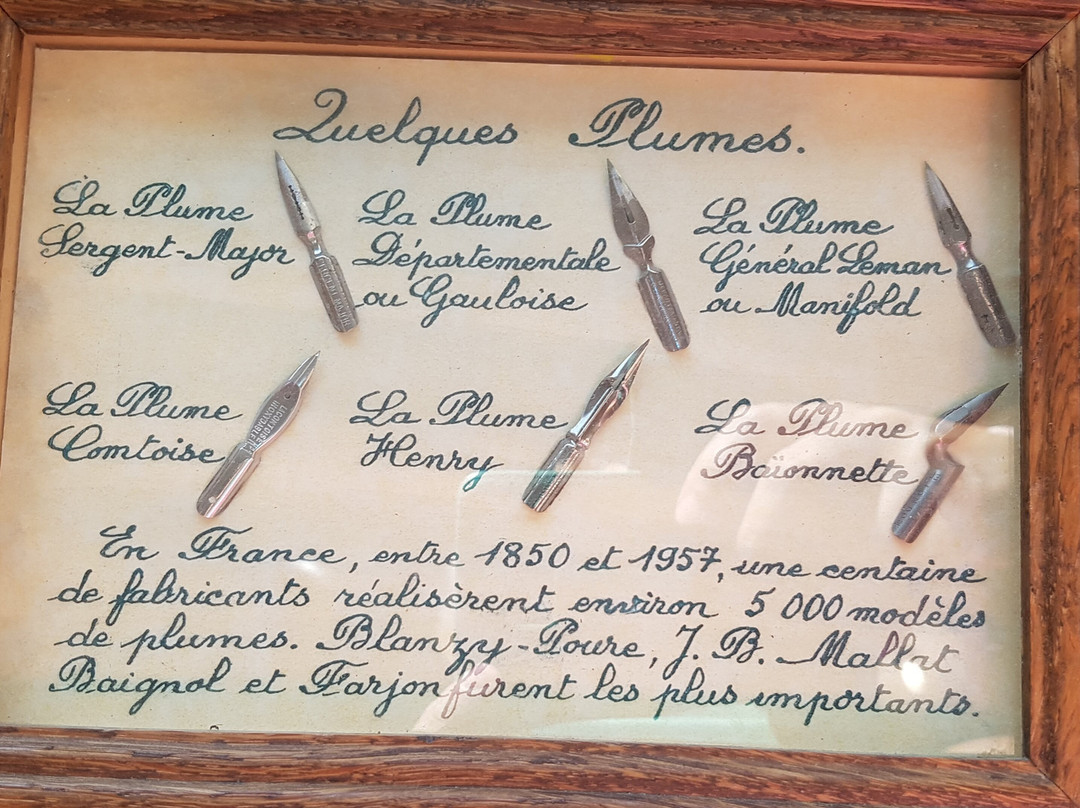 Quelques Plumes.
La Plume
Sergent-Major
La Plume
Départementale
ou Gauloise
La Plume
Général Leman
ou Manifold
La Plume
Comtoise
La Plume
Henry
La Plume
Baïonnette
En France, entre 1850 et 1957, une centaine
de fabricants réalisèrent environ 5 000 modèles
de plumes. Blanzy-Poure, J. B. Mallat
Baignol et Farjon furent les plus importants.